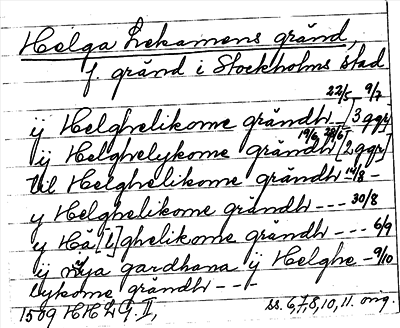 Helga Lekamens gränd,
f. gränd i Stockholms stad
22/5 9/7
ÿ Helghelikome grändh – [3 ggr]
19/6 28/6
ÿ Helghelykome grändh [2 ggr]
til Helghelikome grändh 14/8 –
y Helghelikome grändh --- 30/8
y Hä[l]ghelikome grändh --- 6/9
ÿ nÿa gardhana ÿ Helghe – 9/10
lykome grändh ---
1509 HH 2 G. II, ss. 6,7,8,10,11. orig.